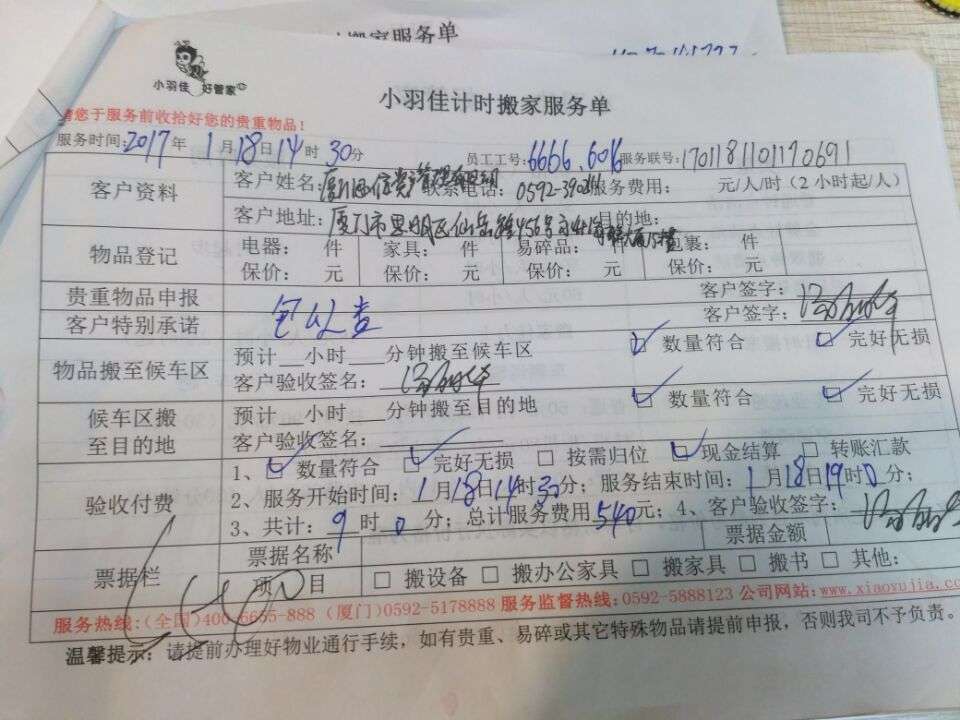 搬家服务单
小羽佳 好管家
小羽佳计时搬家服务单
请您于服务前收拾好您的贵重物品！
服务时间：2017年 1月18日14时30分 员工工号：6666.6016 服务联号：1701181101170691
客户资料 客户姓名： 联系电话：0592- 服务费用： 元/人/时（2小时起/人）
客户地址：厦门市思明区仙岳路456号 目的地：
物品登记 电器： 件 家具： 件 易碎品： 件 包裹： 件
保价： 元 保价： 元 保价： 元 保价： 元
贵重物品申报 客户签字：
客户特别承诺 客户签字：
物品搬至候车区 预计__小时___分钟搬至候车区 ☑ 数量符合 ☑ 完好无损
客户验收签名：
候车区搬至目的地 预计__小时___分钟搬至目的地 ☑ 数量符合 ☑ 完好无损
客户验收签名：
验收付费 1、☑ 数量符合 ☑ 完好无损 □ 按需归位 ☑ 现金结算 □ 转账汇款
2、服务开始时间：1月18日14时30分；服务结束时间：1月18日19时0分；
3、共计：9时0分；总计服务费用540元；4、客户验收签字：
票据栏 票据名称 票据金额
项目 □ 搬设备 □ 搬办公家具 □ 搬家具 □ 搬书 □ 其他：
服务热线：(全国)400-6655-888 (厦门)0592-5178888 服务监督热线：0592-5888123 公司网站：www.xiaoyujia.com
温馨提示：请提前办理好物业通行手续，如有贵重、易碎或其它特殊物品请提前申报，否则我司不予负责。